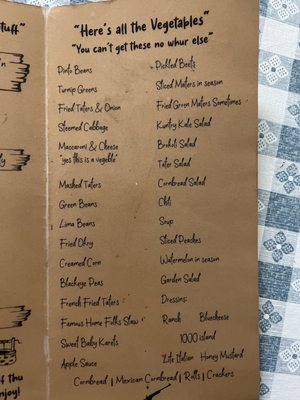 tuff"
"Here's all the Vegetables"
"You can't get these no whur else"
Pinto Beans
Turnip Greens
Fried Taters & Onion
Steemed Cabbage
Maccaroni & Cheese
'yes this is a vegeble'
Mashed Taters
Green Beans
Lima Beans
Fried Okry
Creamed Corn
Blackeye Peas
French Fried Taters
Famous Home Folks Slaw
Sweet Baby Karots
Apple Sauce
Pickled Beets
Sliced Maters in season
Fried Green Maters Sometimes
Kuntry Kale Salad
Brokoli Salad
Tater Salad
Cornbread Salad
Chili
Soup
Sliced Peaches
Watermelon in season
Garden Salad
Dressins:
Ranch Bluecheese
1000 island
'Lite Italian Honey Mustard
Cornbread | Mexican Cornbread | Rolls | Crackers
f thu
njoy!